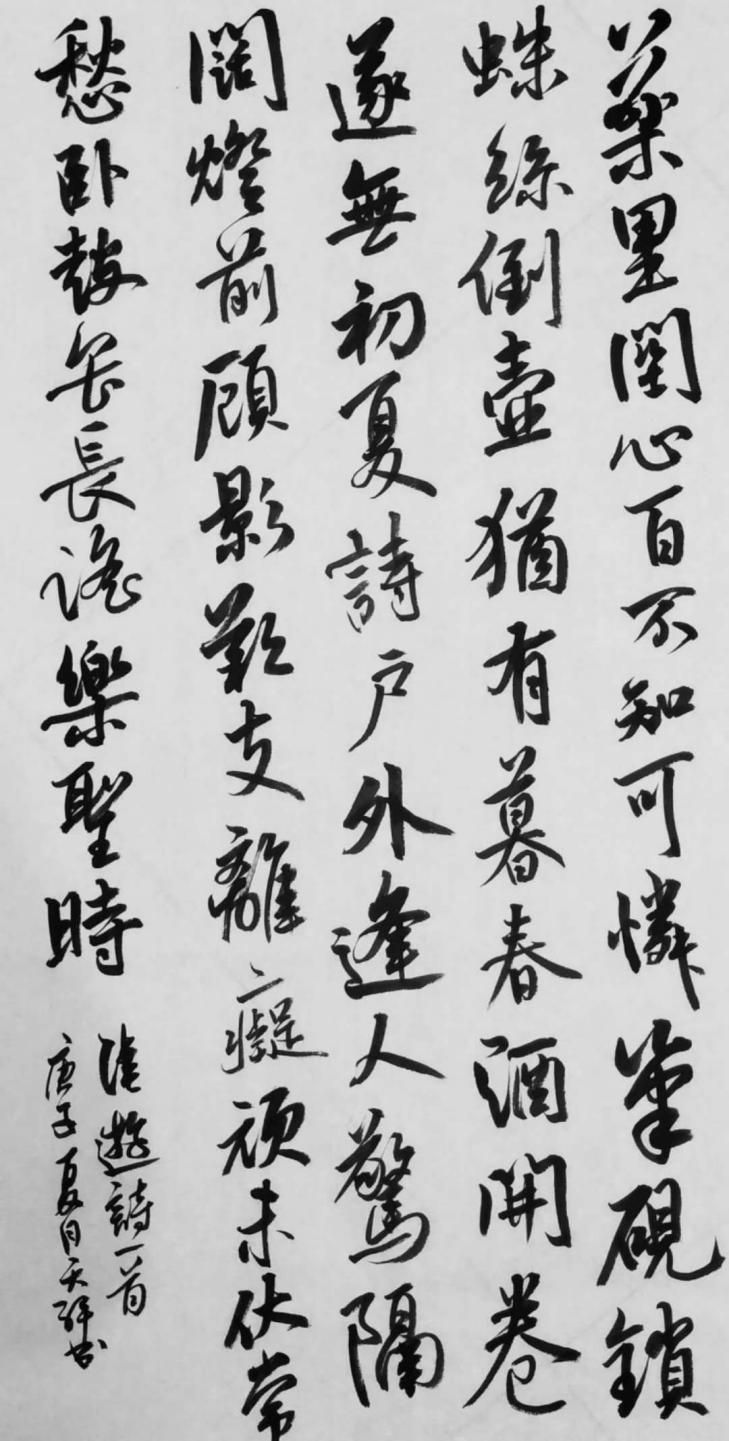 藥里関心百不知可憐筆硯鎖
蛛絲倒壺猶有暮春酒開卷
遂無初夏詩户外逢人驚隔
闊燈前顧影歎支離癡頑未伏常
愁卧鼓缶長謠樂聖時
陸遊詩一首
庚子夏日天祥書